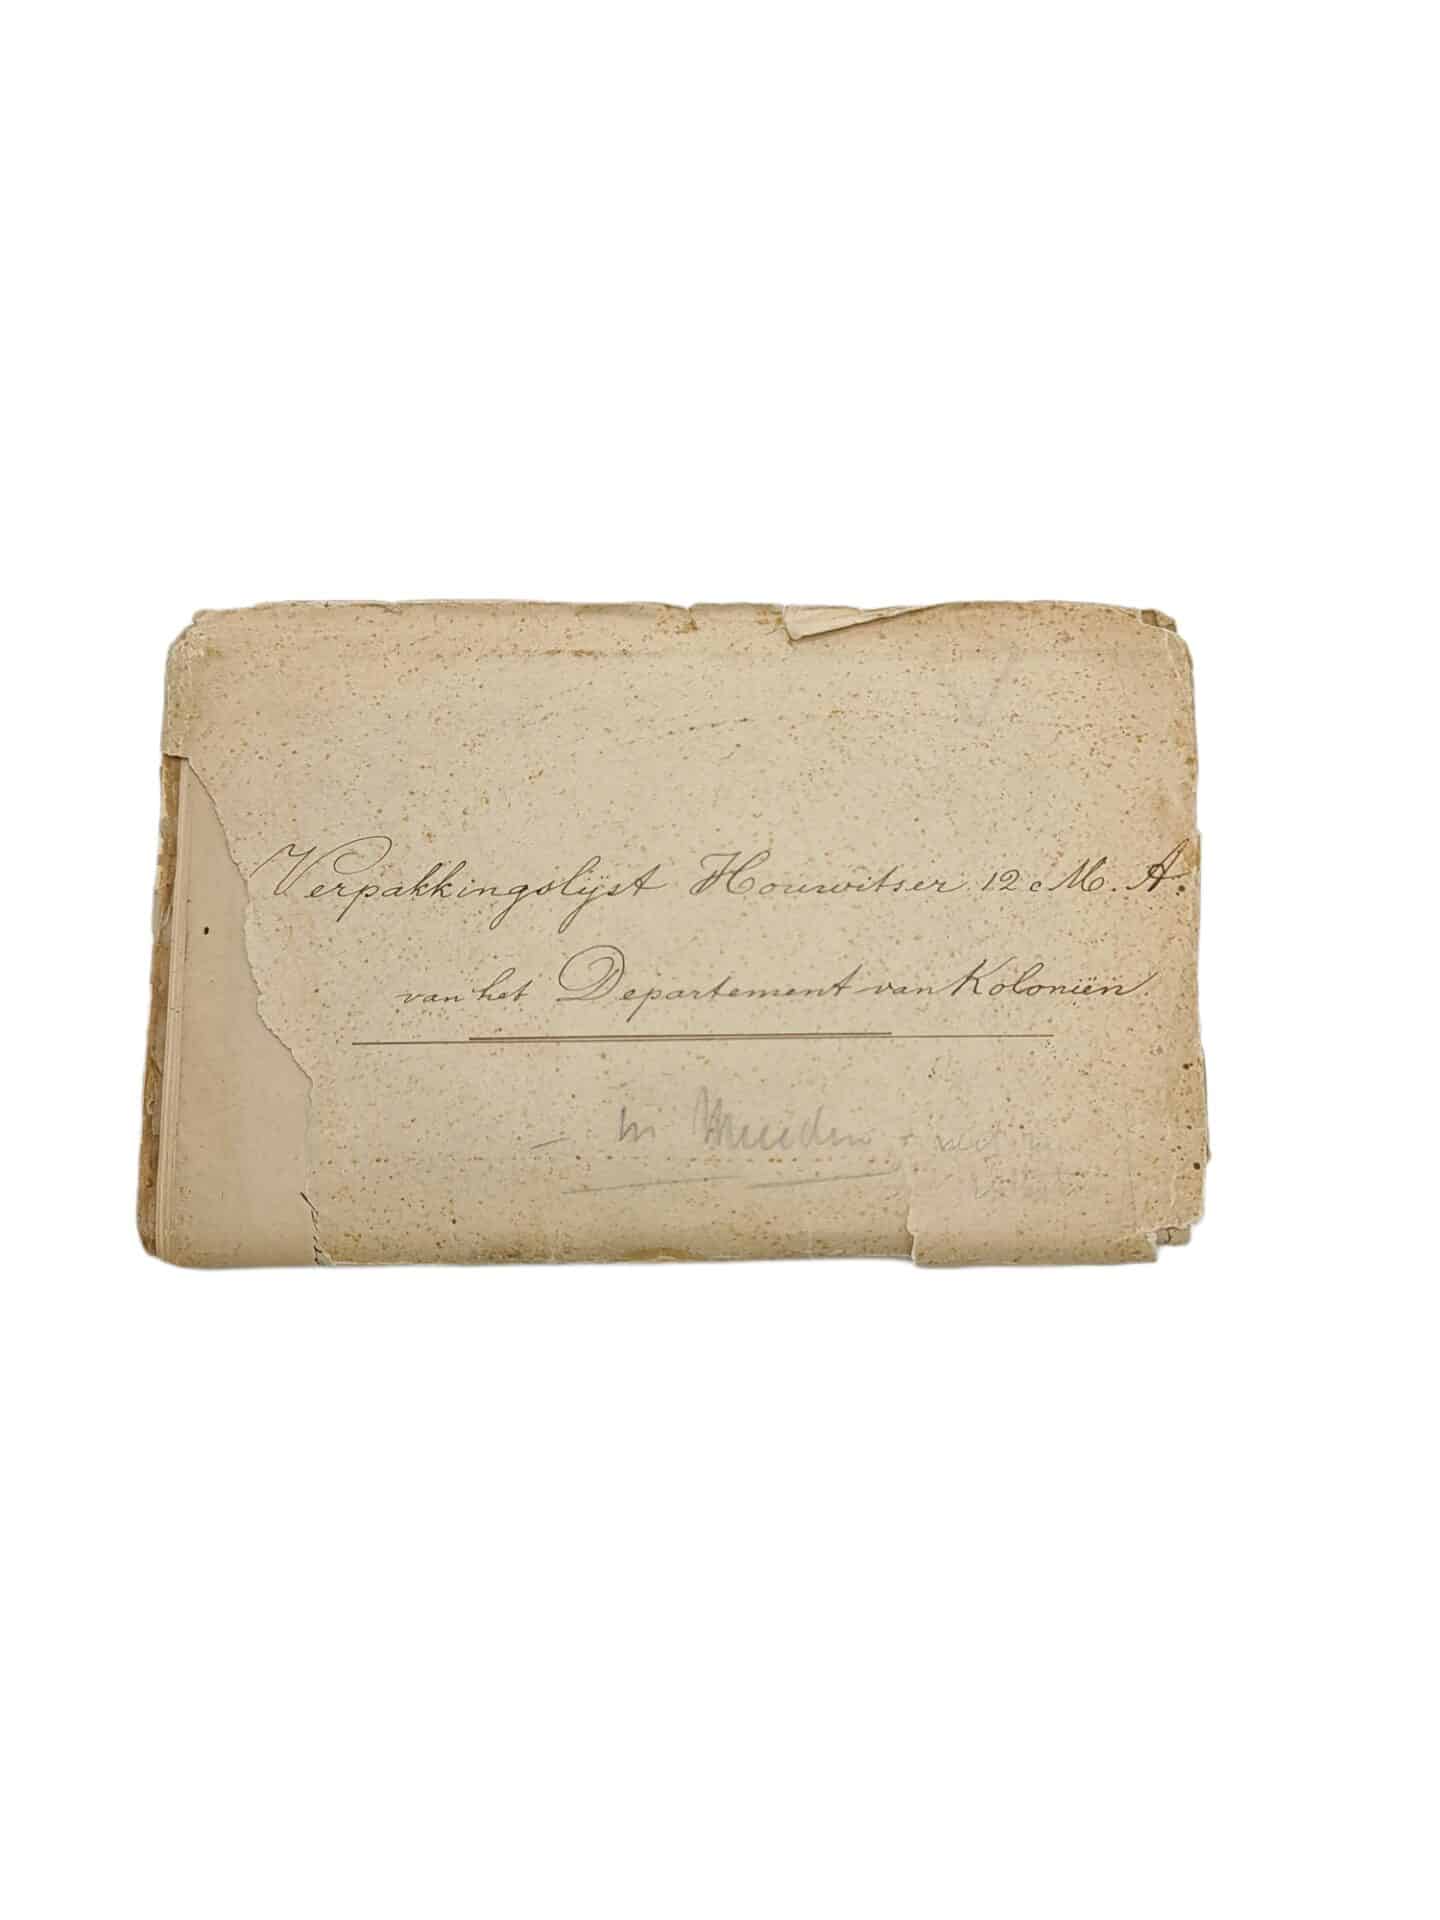 Verpakkingslijst Houwitser 12 cM. A.
van het Departement van Koloniën.
in